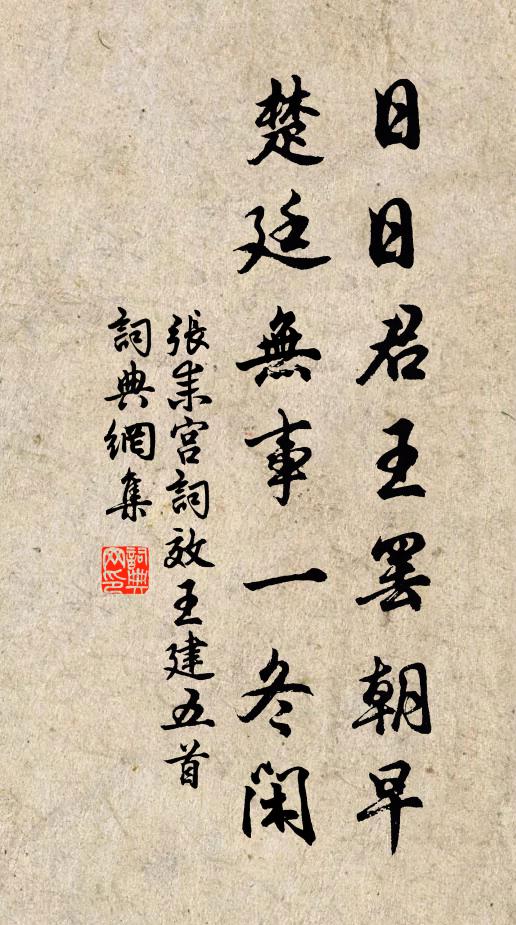 日日君王罢朝早
楚廷無事一冬閑
張耒宫詞效王建五首
詞典網集
詞典网印